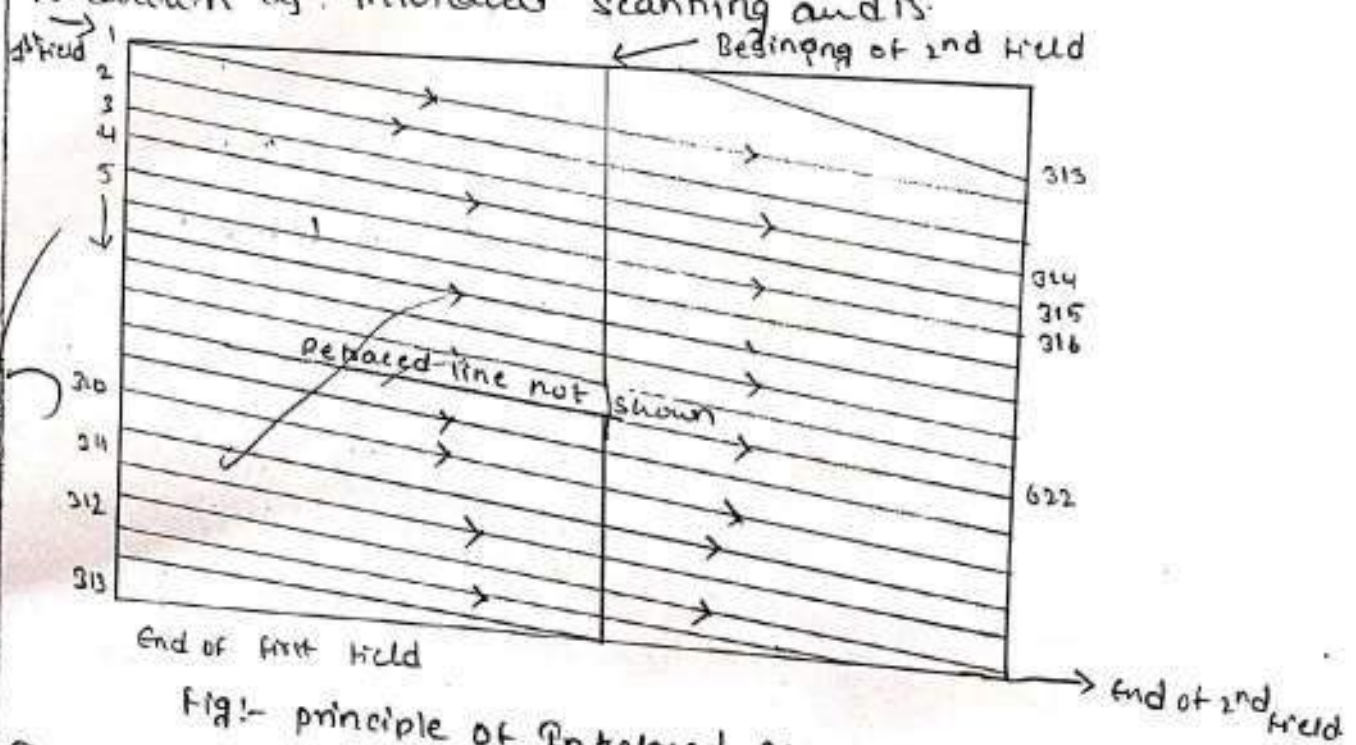 scanning and is.
1st Field
1
Begining of 2nd Field
2
3
4
5
313
314
315
316
Retraced line not shown
310
311
312
313
622
End of first field
End of 2nd Field
Fig:- principle of